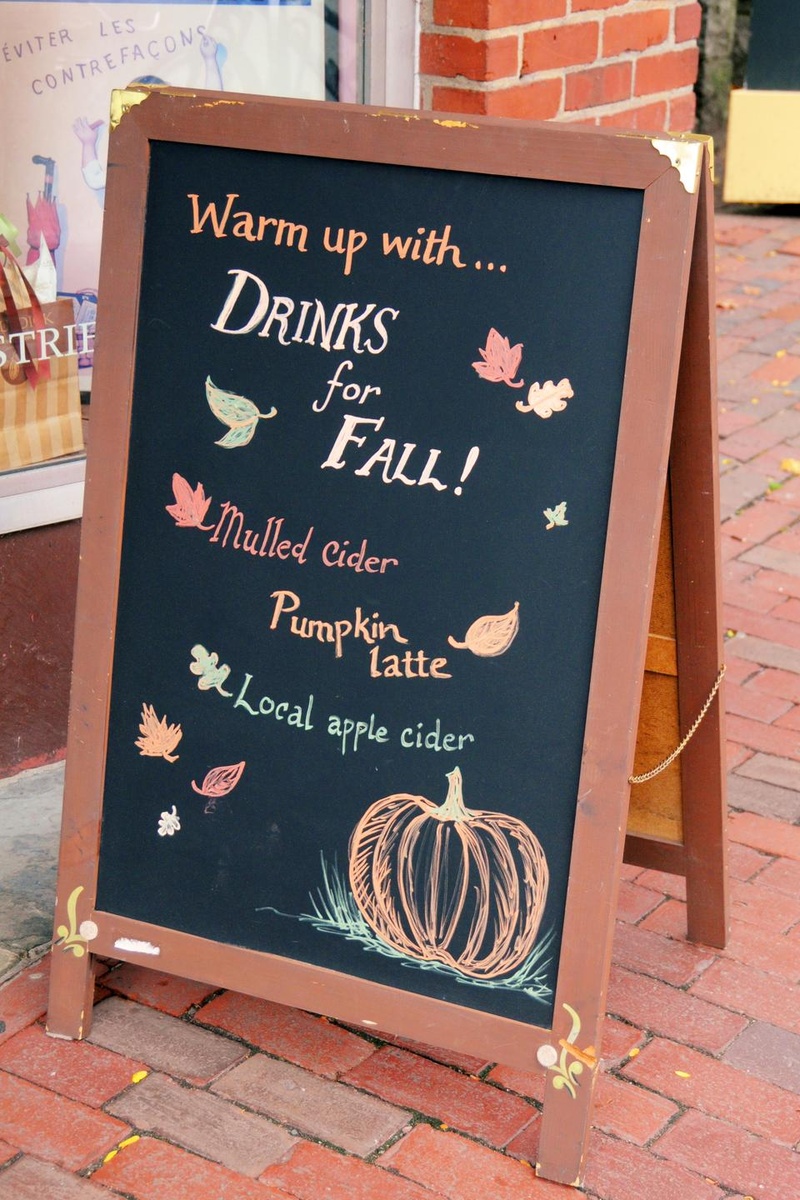 ÉVITER LES
CONTREFAÇONS
Warm up with...
DRINKS
for
FALL!
Mulled cider
Pumpkin
latte
Local apple cider